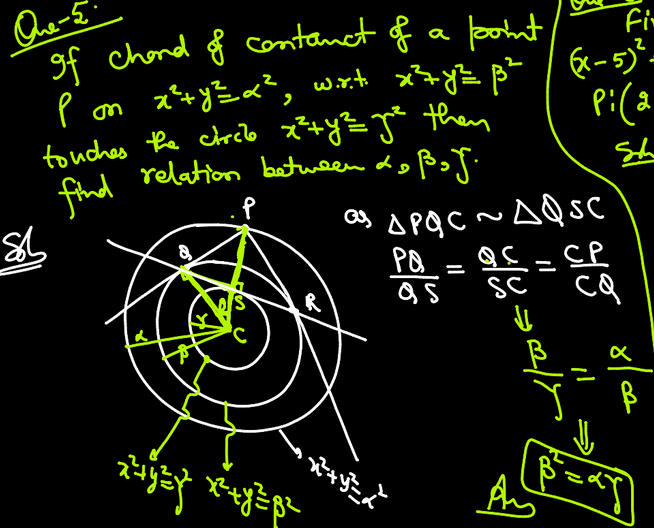 Que-5.
If chord of contanct of a point
P on x²+y²=α², w.r.t. x²+y²=β²
touches the circle x²+y²=γ² then
find relation between α, β, γ.
Fi
(x-5)²
Pi(2
Sol
P
Q
S
R
C
α
β
γ
θ
x²+y²=γ²
x²+y²=β²
x²+y²=α²
as ΔPQC ~ ΔQSC
PQ/QS = QC/SC = CP/CQ
⇓
β/γ = α/β
⇓
β²=αγ
Ans